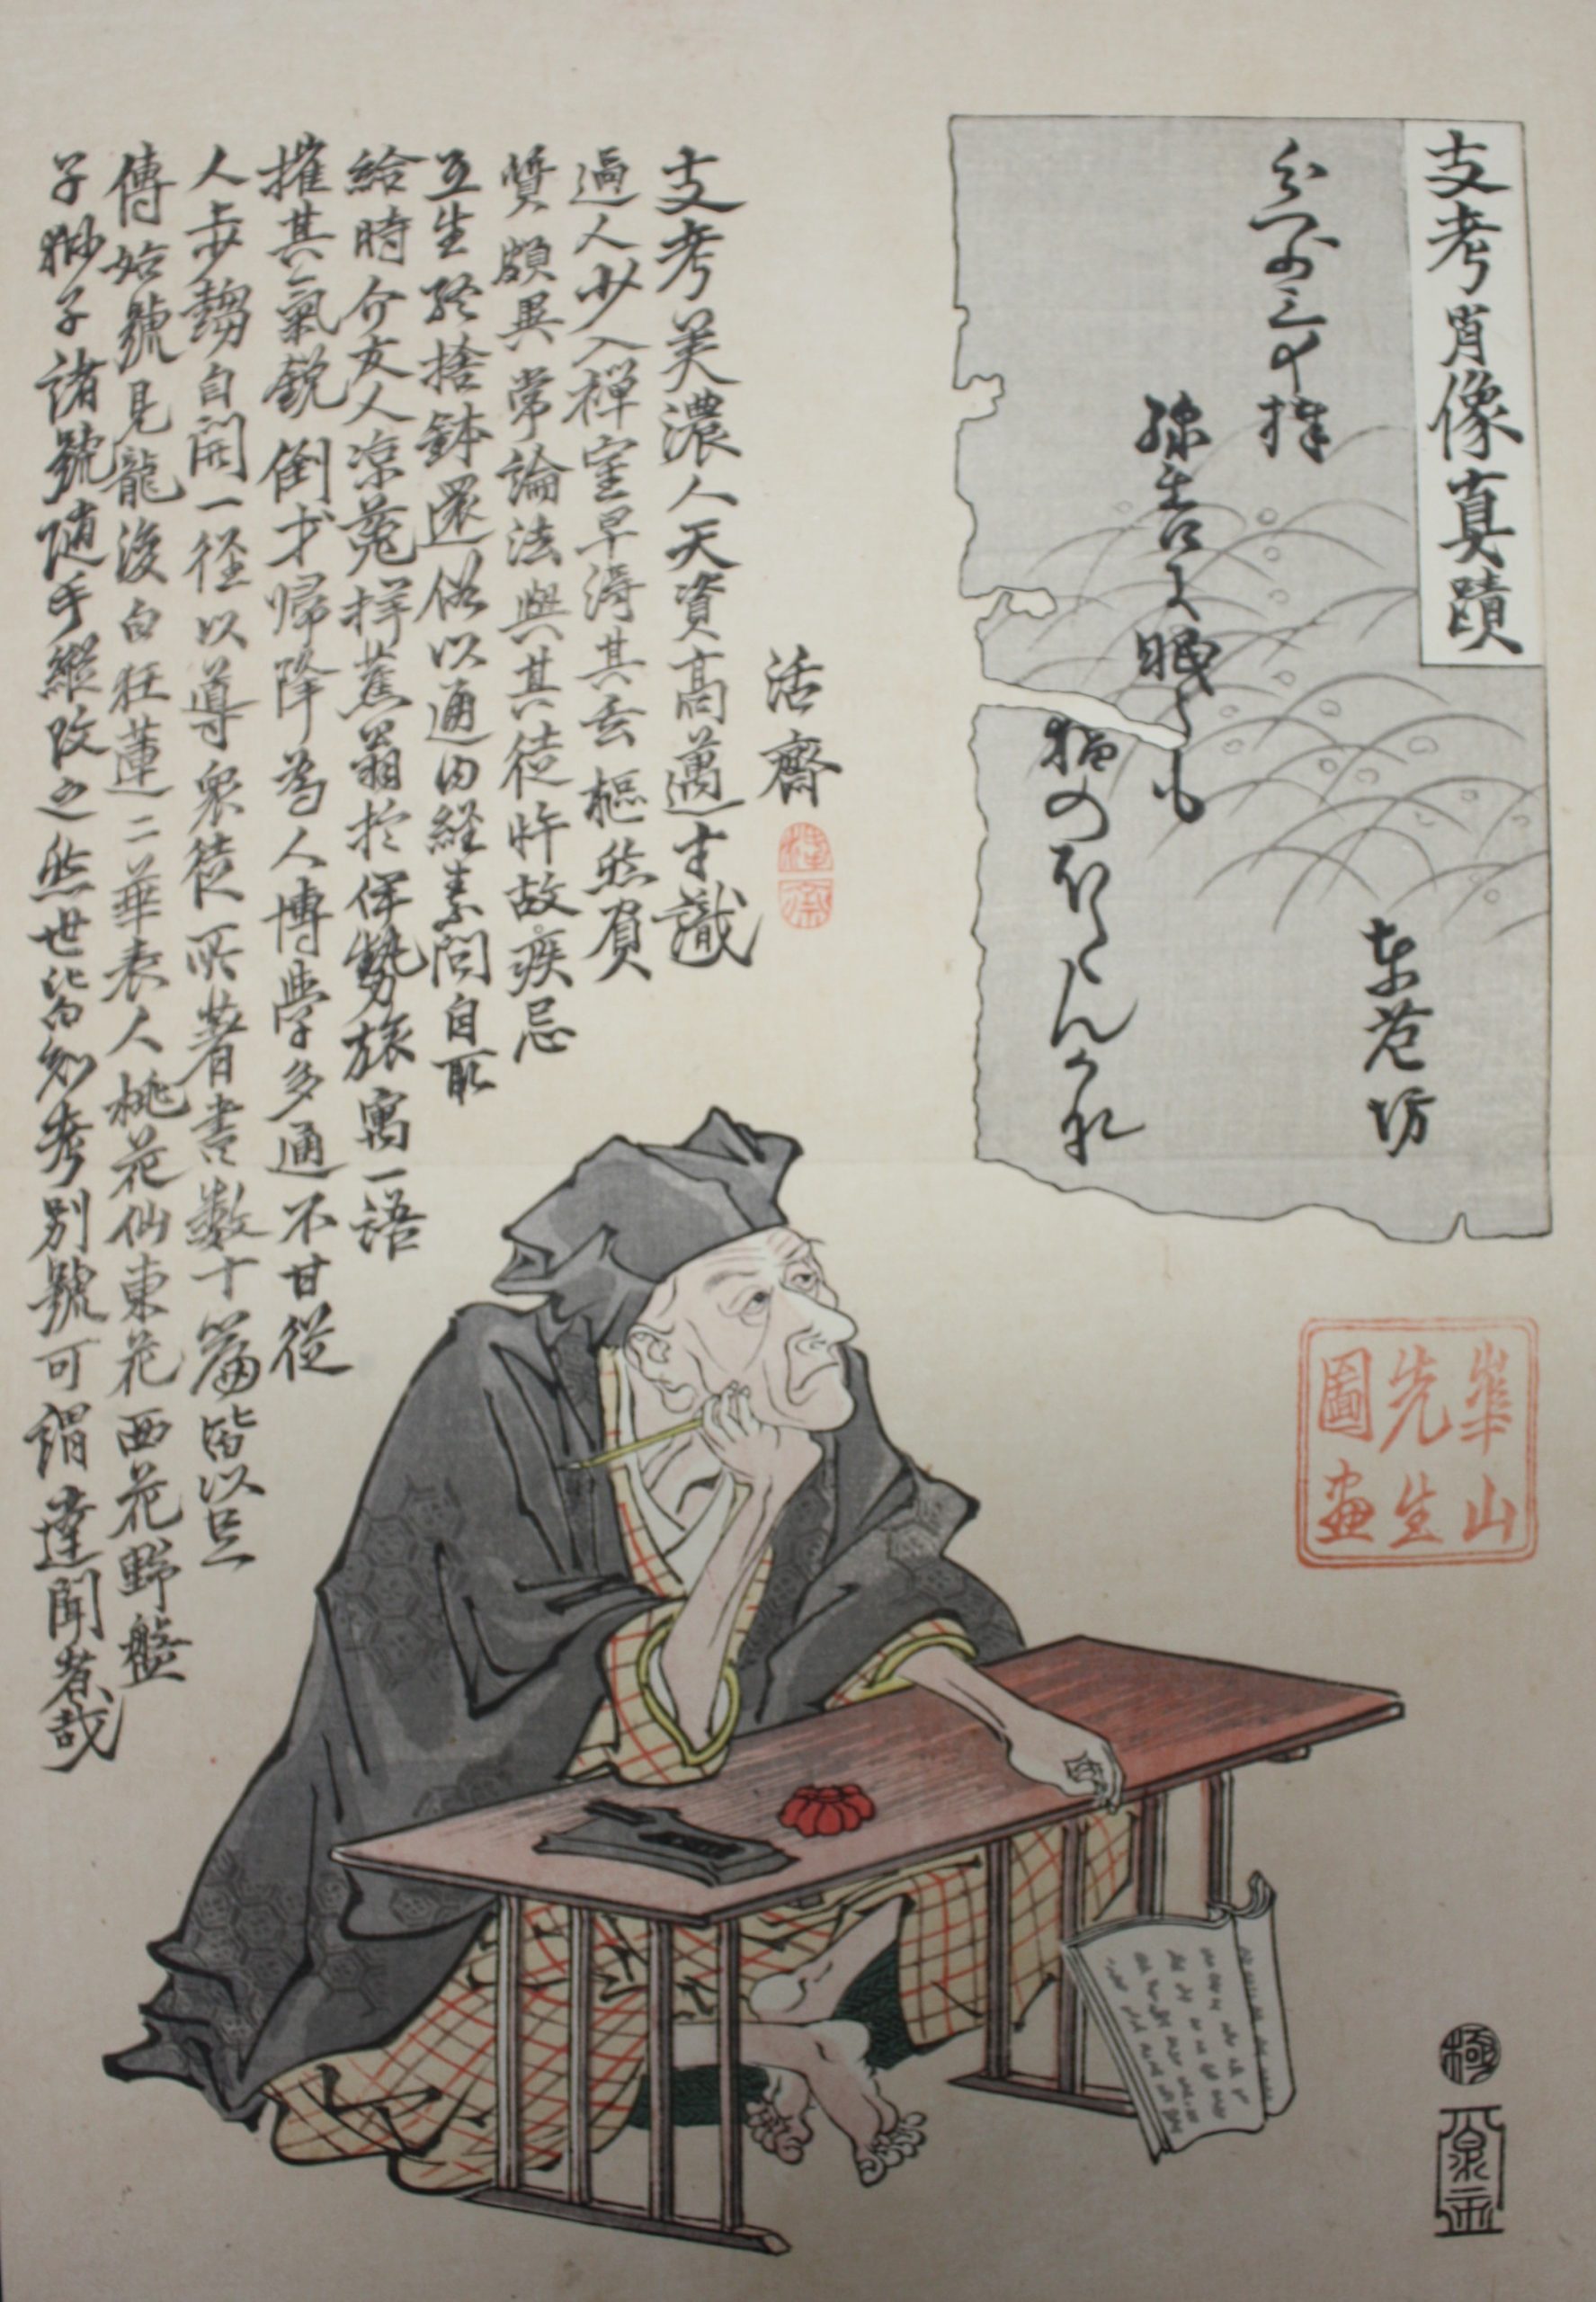 支考肖像真蹟
東花坊
活齋
支考美濃人天資高邁才識
過人少入禅室早得其玄樞然負
質頗異常論法與其徒忤故疾忌
互生終捨鉢還俗以通内経素問自取
給時介友人凉菟拝蕉翁於伊勢旅寓一語
摧其氣鋭倒戈帰降為人博學多通不甘従
人歩趨自開一径以導衆徒所著書数十篇皆以旦
傳始號見龍後白狂蓮二華表人桃花仙東花西花野盤
子獅子諸號随手縦改之然世皆知考別號可謂達聞者哉
崋山
先生
圖画
極